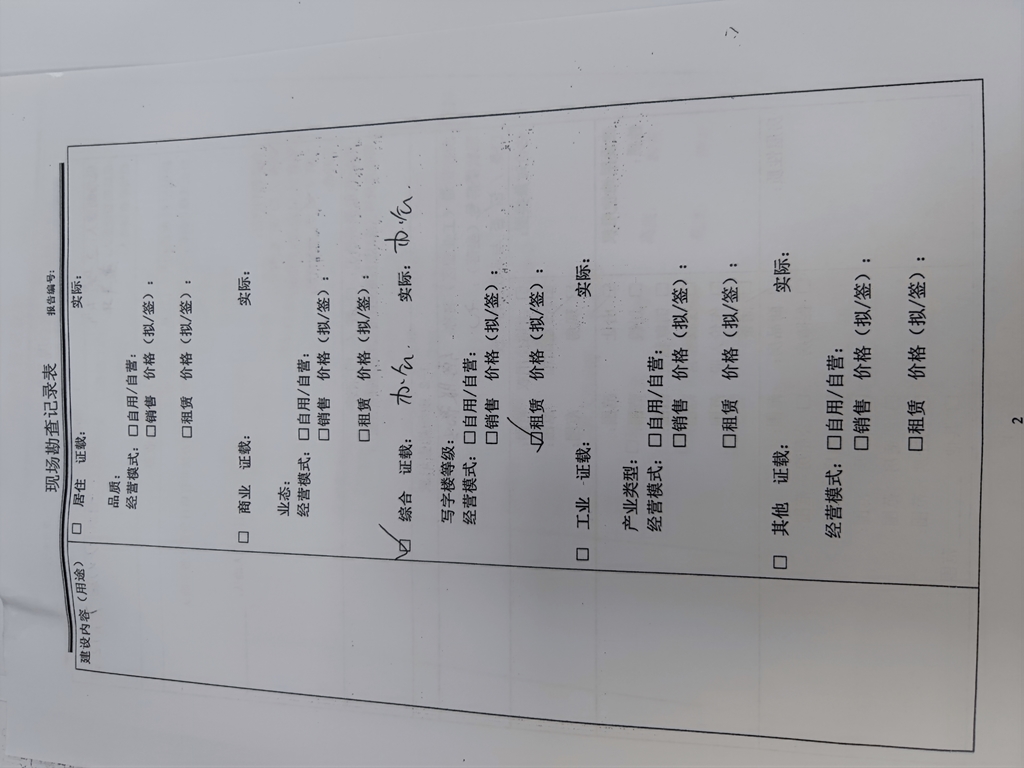 现场勘查记录表
报告编号:
建设内容（用途）
□ 居住 证载: 实际:
品质:
经营模式: □自用/自营:
□销售 价格（拟/签）:
□租赁 价格（拟/签）:
□ 商业 证载: 实际:
业态:
经营模式: □自用/自营:
□销售 价格（拟/签）:
□租赁 价格（拟/签）:
☑ 综合 证载: 办公. 实际: 办公.
写字楼等级:
经营模式: □自用/自营:
□销售 价格（拟/签）:
☑租赁 价格（拟/签）:
□ 工业 证载: 实际:
产业类型:
经营模式: □自用/自营:
□销售 价格（拟/签）:
□租赁 价格（拟/签）:
□ 其他 证载: 实际:
经营模式: □自用/自营:
□销售 价格（拟/签）:
□租赁 价格（拟/签）:
2